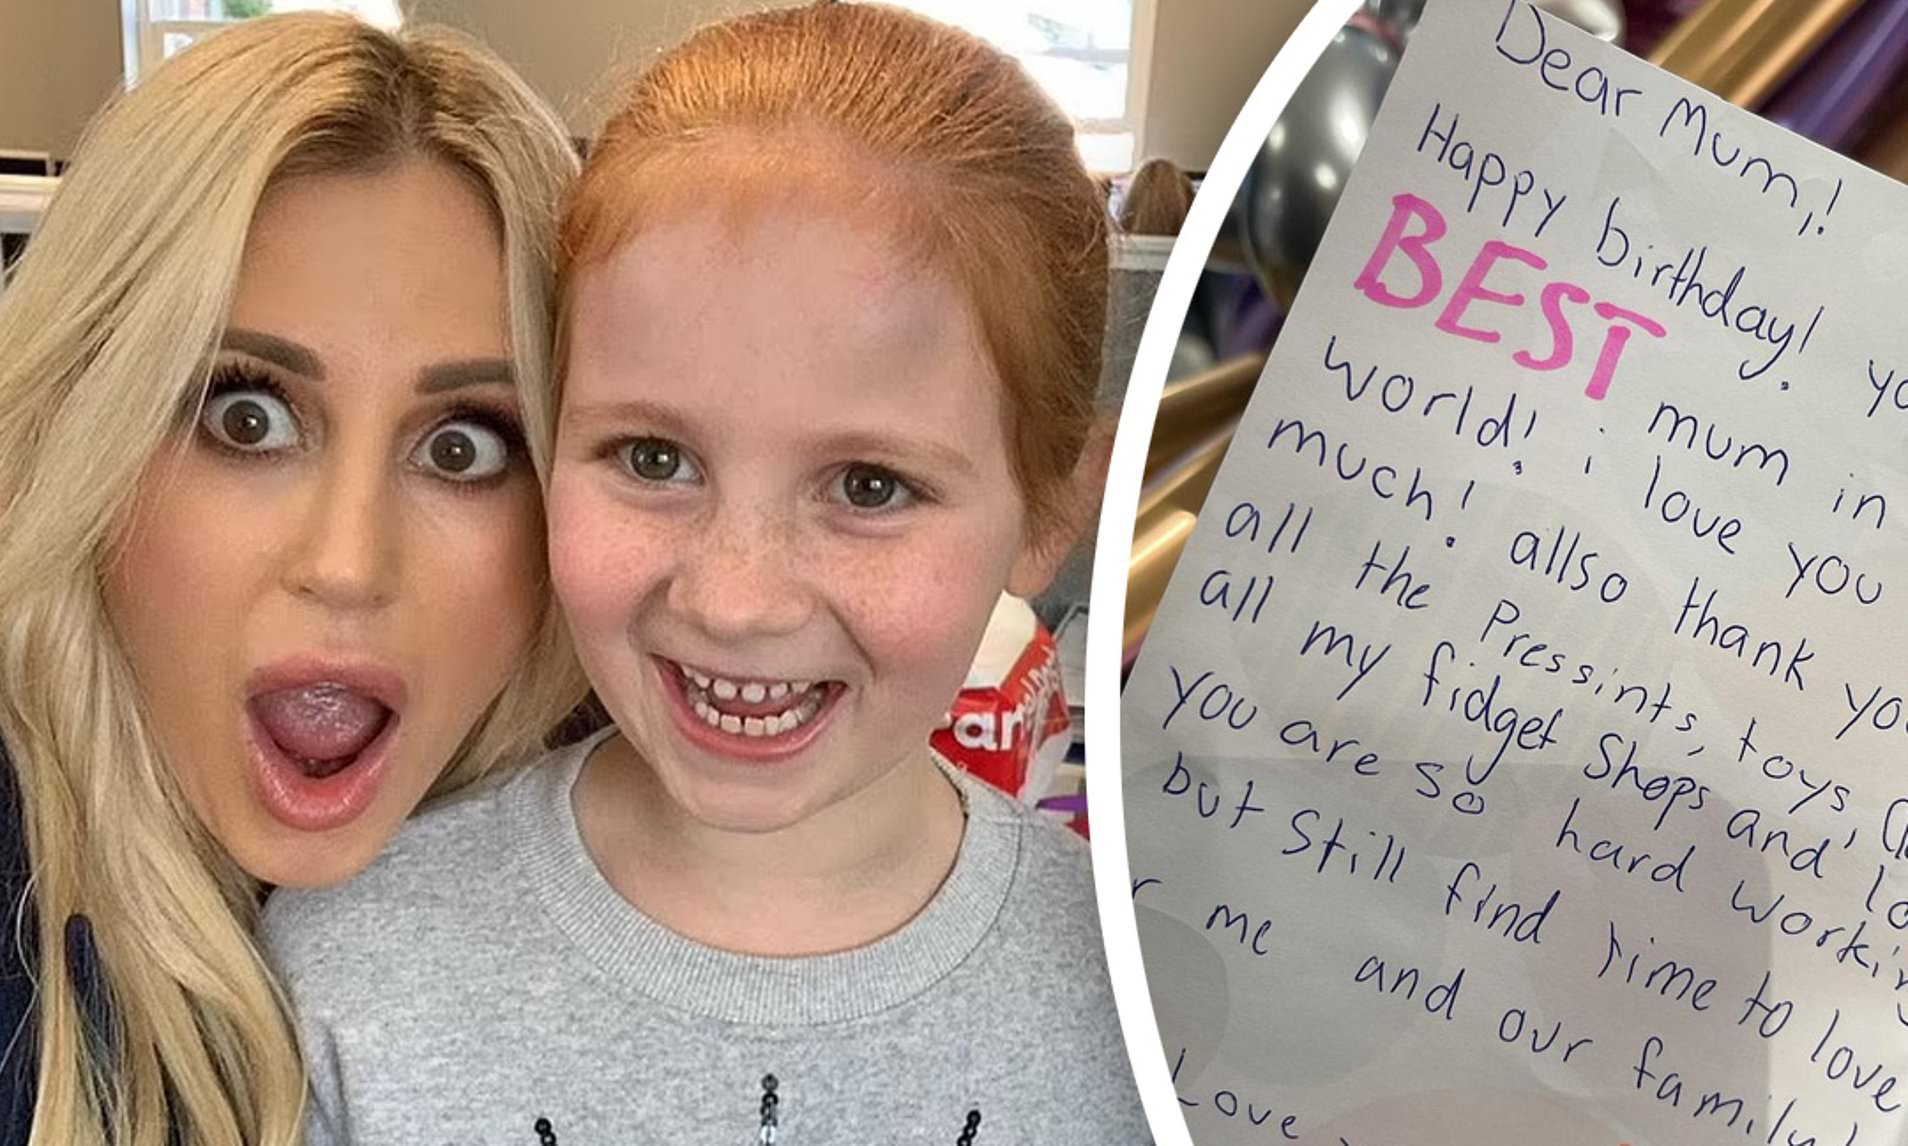 Dear Mum,!
Happy birthday!
BEST mum in
world! i love you
much! allso thank
all the Pressints, toys,
all my fidget Shops and
You are so hard
but Still find time to love
me and our family!
Love